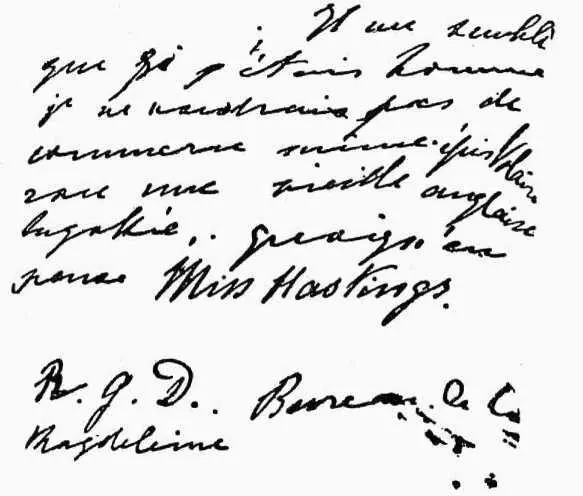 Il me semble
que si j'étais homme
je ne voudrais pas de
commerce même épistolaire
avec une vieille anglaise
quoiqu'en
pense Miss Hastings.
R. G. D. Bureau de la
Madeleine